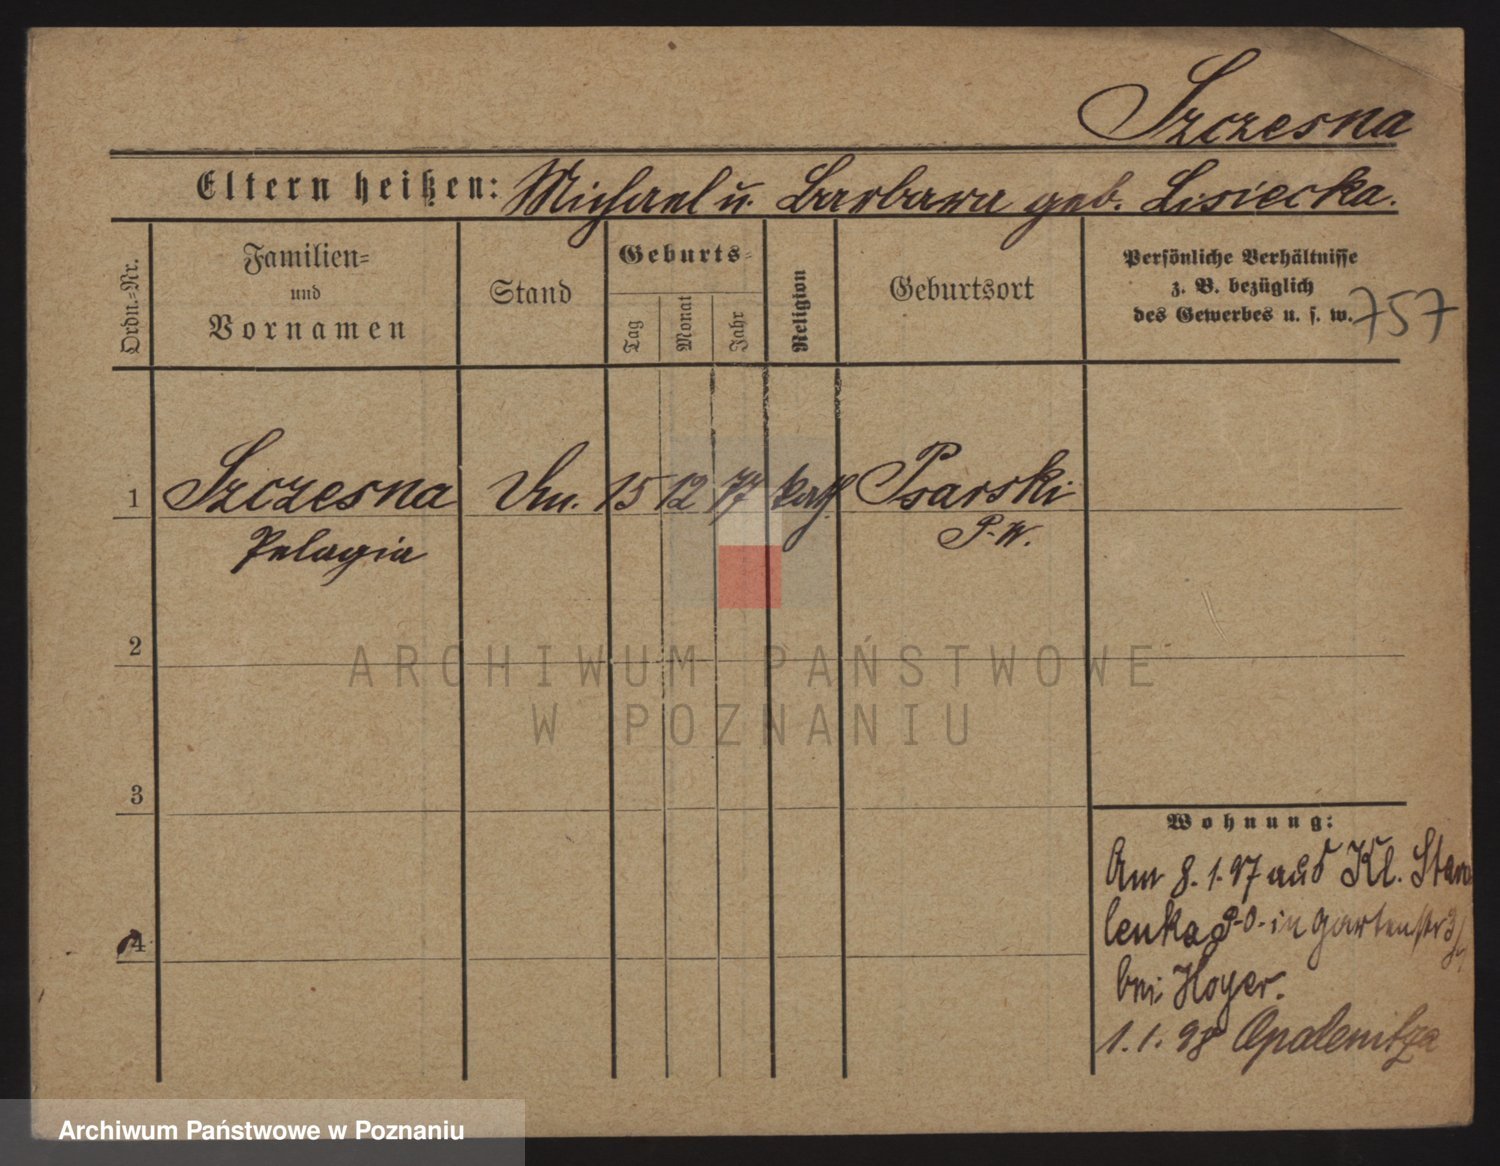 Szczesna
Eltern heißen: Michael u. Barbara geb. Lisiecka.
Ordn.-Nr.
Familien-
und
Vornamen
Stand
Geburts-
Tag
Monat
Jahr
Religion
Geburtsort
Persönliche Verhältnisse
z. B. bezüglich
des Gewerbes u. s. w.
757
1 Szczesna 15 12 77 kath. Psarski
Pelagia P.-W.
2
3
4
ARCHIWUM PAŃSTWOWE
W POZNANIU
Wohnung:
Am 8.1.97 aus Kl. Staro
lenka P-O. in Gartenstr
bei Hoyer.
1.1.98 Opalenitza
Archiwum Państwowe w Poznaniu